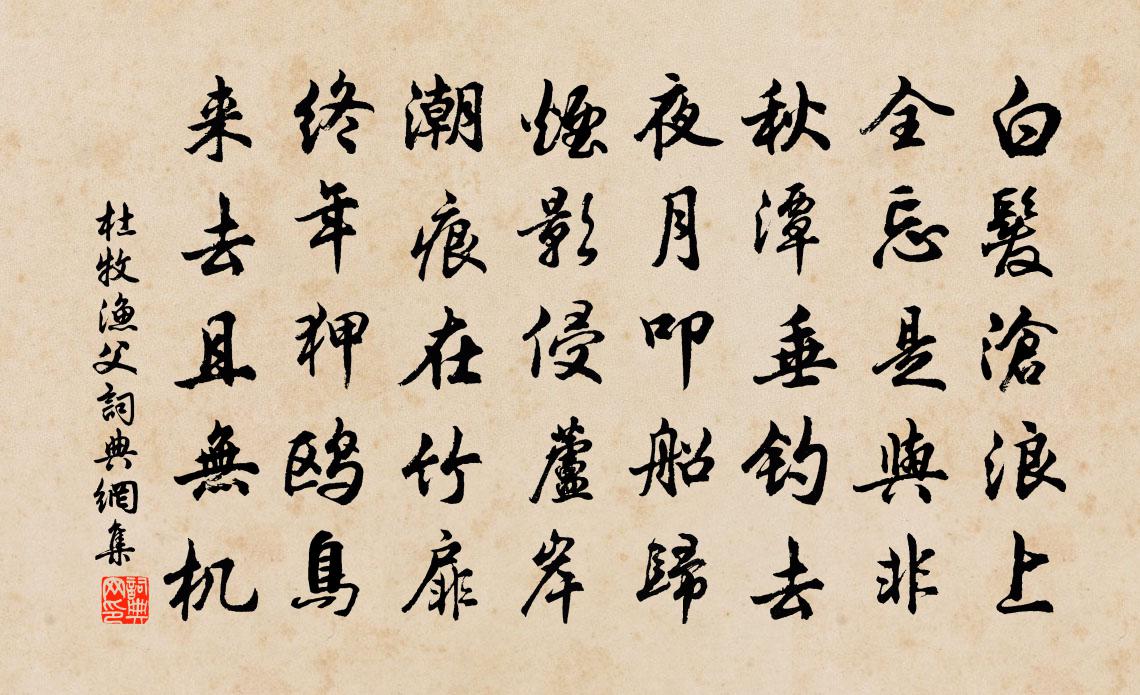 白髮滄浪上
全忘是與非
秋潭垂釣去
夜月叩船歸
煙影侵蘆岸
潮痕在竹扉
終年狎鷗鳥
来去且無机
杜牧漁父詞典網集
詞典网印